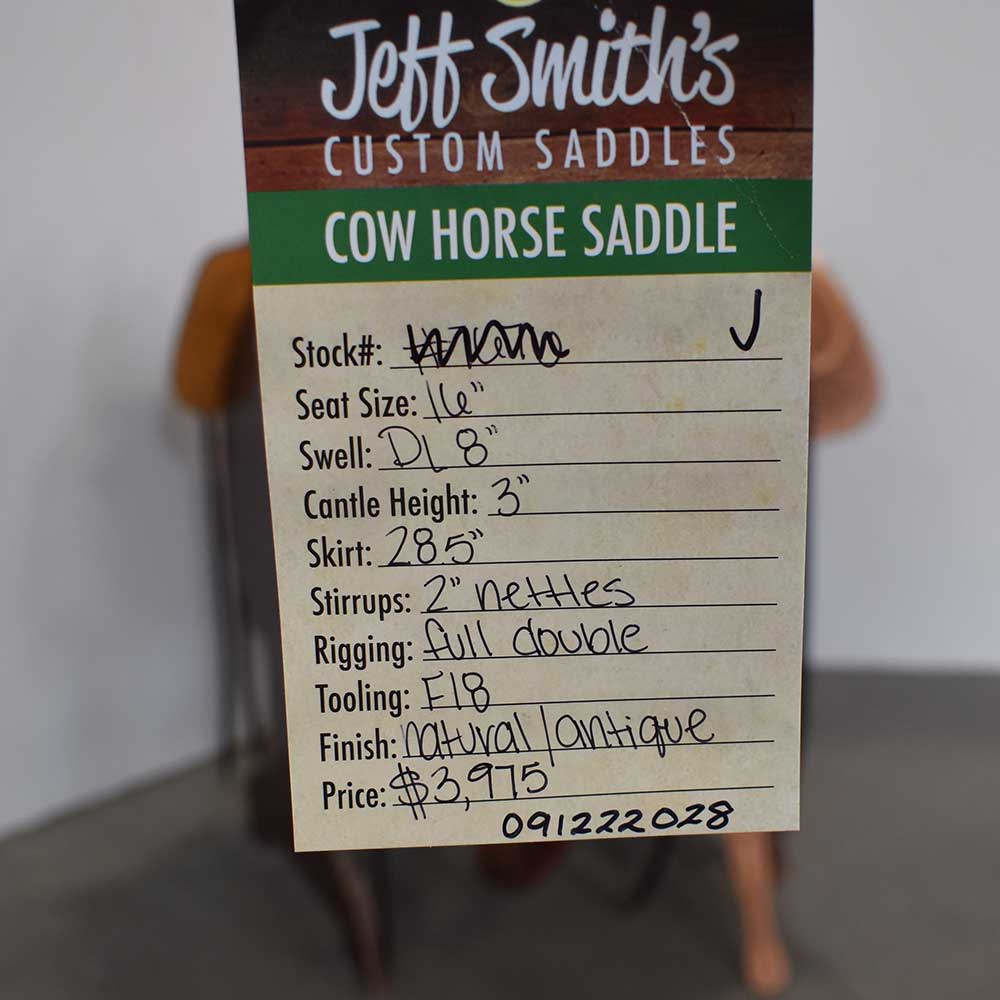 Jeff Smith's
CUSTOM SADDLES
COW HORSE SADDLE
J
Stock#:
Seat Size: 16"
Swell: DL 8"
Cantle Height: 3"
Skirt: 28.5"
Stirrups: 2" nettles
Rigging: full double
Tooling: F18
Finish: natural/antique
Price: $3,975
091222028